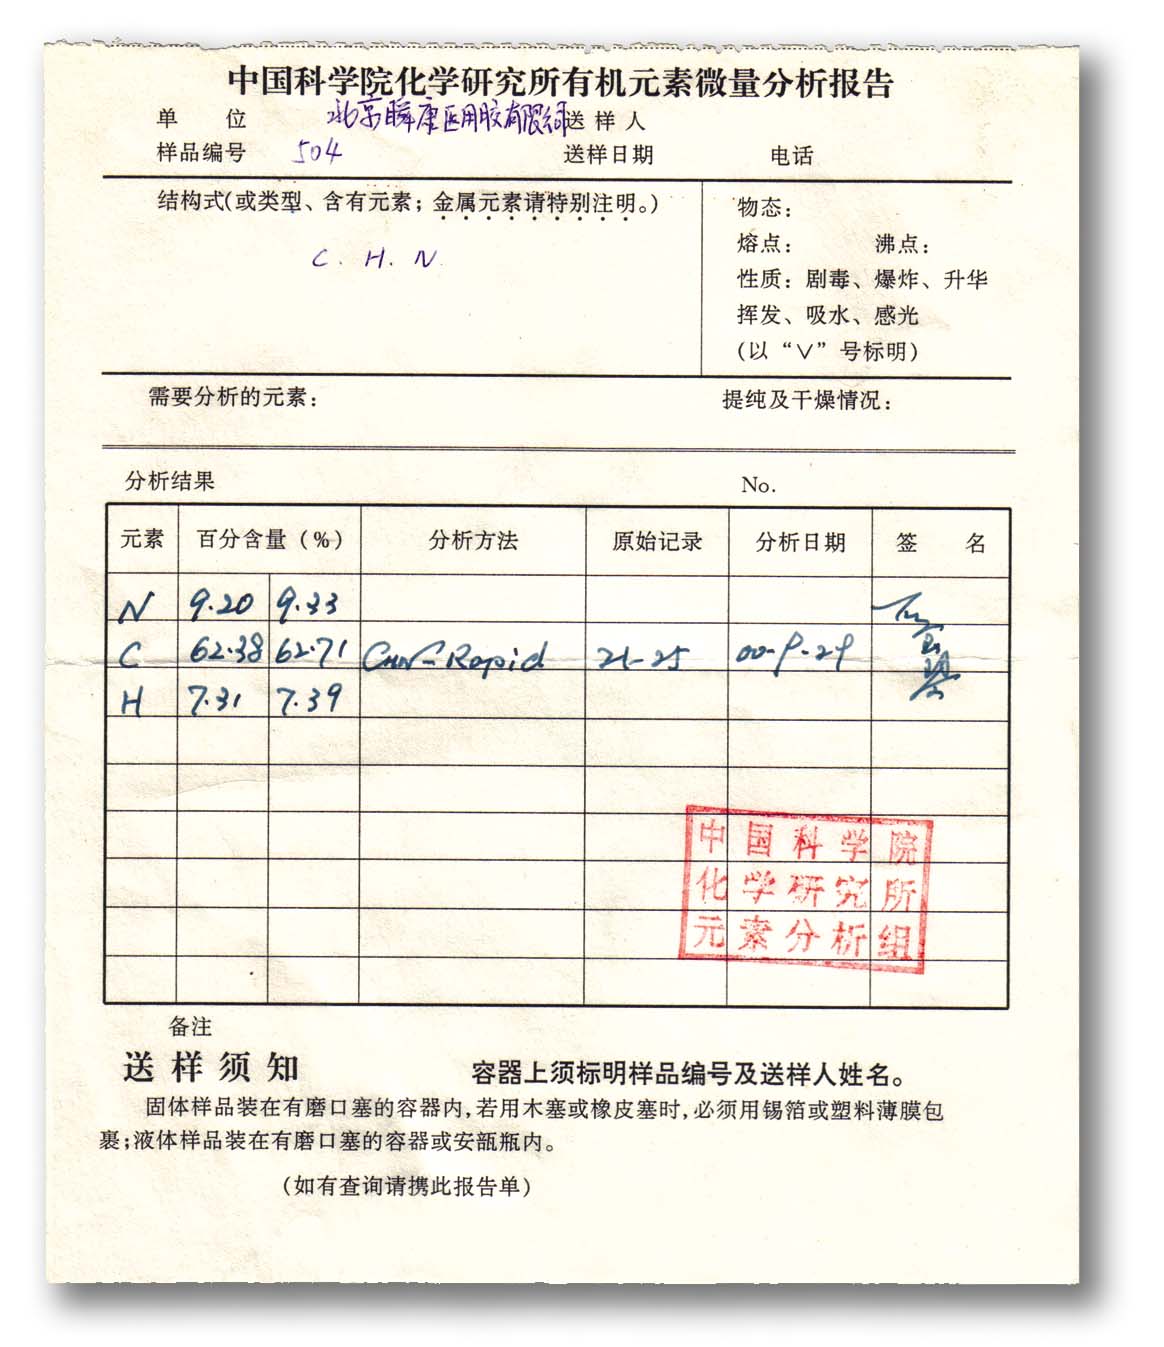 中国科学院化学研究所有机元素微量分析报告
单 位 北京瞬康医用胶有限公司 送 样 人
样品编号 504 送样日期 电话
结构式(或类型、含有元素；金属元素请特别注明。)
C . H . N
物态：
熔点： 沸点：
性质：剧毒、爆炸、升华
挥发、吸水、感光
(以“∨”号标明)
需要分析的元素： 提纯及干燥情况：
分析结果 No.
元素 百分含量(%) 分析方法 原始记录 分析日期 签 名
N 9.20 9.33
C 62.38 62.71 CHN-Rapid 21-25 00-9-29
H 7.31 7.39
中国科学院
化学研究所
元素分析组
备注
送样须知 容器上须标明样品编号及送样人姓名。
固体样品装在有磨口塞的容器内,若用木塞或橡皮塞时,必须用锡箔或塑料薄膜包
裹;液体样品装在有磨口塞的容器或安瓿瓶内。
(如有查询请携此报告单)